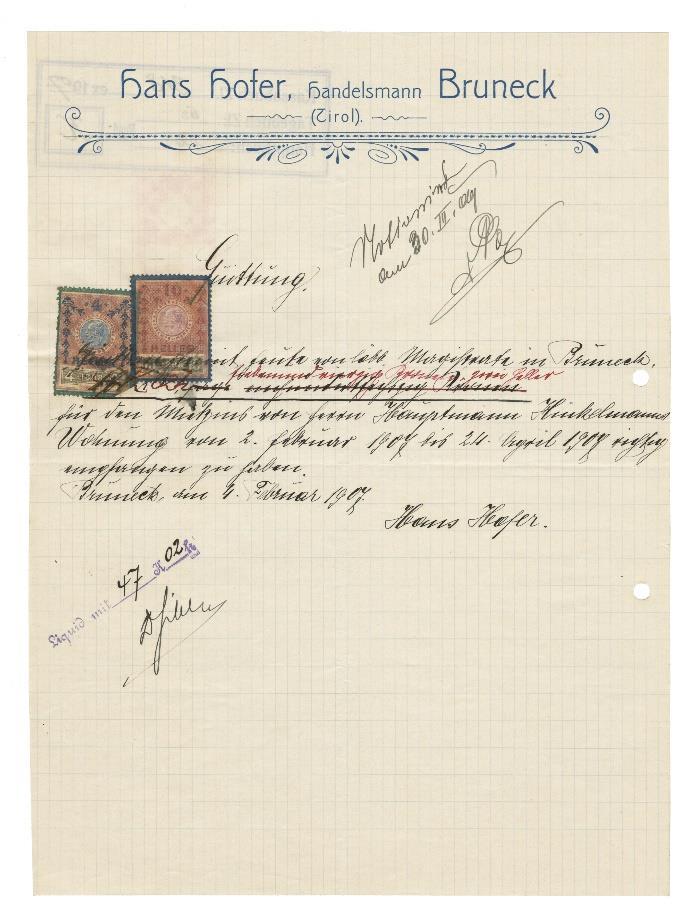 Hans Hofer, Handelsmann Bruneck
(Tirol).
am 30. III. 09
Quittung.
4
10
HELLER
heute vom löbl. Magistrate in Bruneck.
siebenundvierzig Kronen zwei Heller
für den Mietzins von Herrn Hauptmann Hinkelmanns
Wohnung von 2. Februar 1907 bis 24. April 1907 richtig
empfangen zu haben.
Bruneck, am 4. Februar 1907.
Hans Hofer.
Liquid mit 47 K 02 h